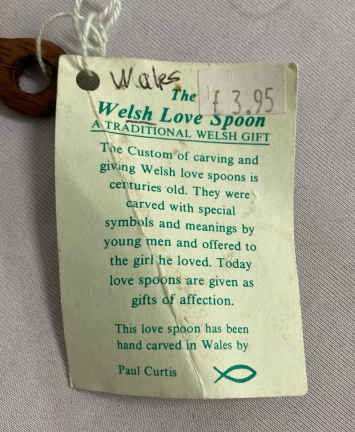 Wales
£ 3.95
The
Welsh Love Spoon
A TRADITIONAL WELSH GIFT
The Custom of carving and
giving Welsh love spoons is
centuries old. They were
carved with special
symbols and meanings by
young men and offered to
the girl he loved. Today
love spoons are given as
gifts of affection.
This love spoon has been
hand carved in Wales by
Paul Curtis